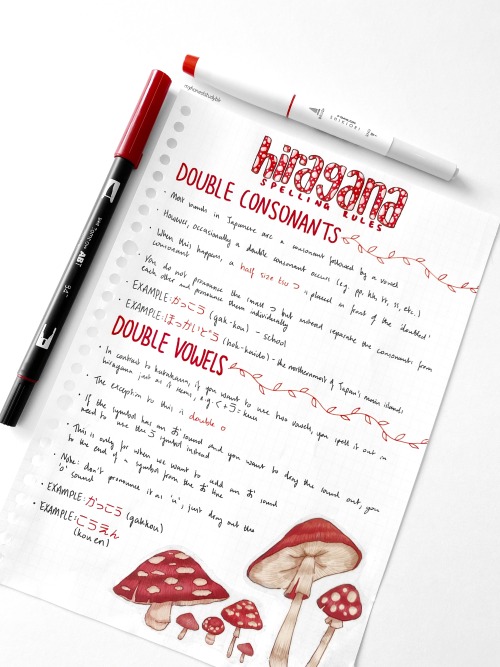 myhoneststudyblr
hiragana
SPELLING RULES
DOUBLE CONSONANTS
· Most words in Japanese are a consonant followed by a vowel
· However, occasionally a double consonant occurs (e.g. pp, kk, tt, ss, etc.)
· When this happens, a half size tsu っ is placed in front of the 'doubled'
consonant
· You do not pronounce the small っ but instead separate the consonants from
each other and pronounce them individually
· EXAMPLE: かっこう (gak-kou) - school
· EXAMPLE: ほっかいどう (hok-kaido) - the northernmost of Japan's main islands
DOUBLE VOWELS
· In contrast to katakana, if you want to use two vowels, you spell it out in
hiragana just as it seems, e.g. く+う = kuu
· The exception to this is double o
· If the symbol has an お sound and you want to drag the sound out, you
need to use the う symbol instead
· This is only for when we want to add an お sound
to the end of a symbol from the お line
· Note: don't pronounce it as 'u', just drag out the
'o' sound
· EXAMPLE: かっこう (gakkou)
· EXAMPLE: こうえん
(kouen)
ABT